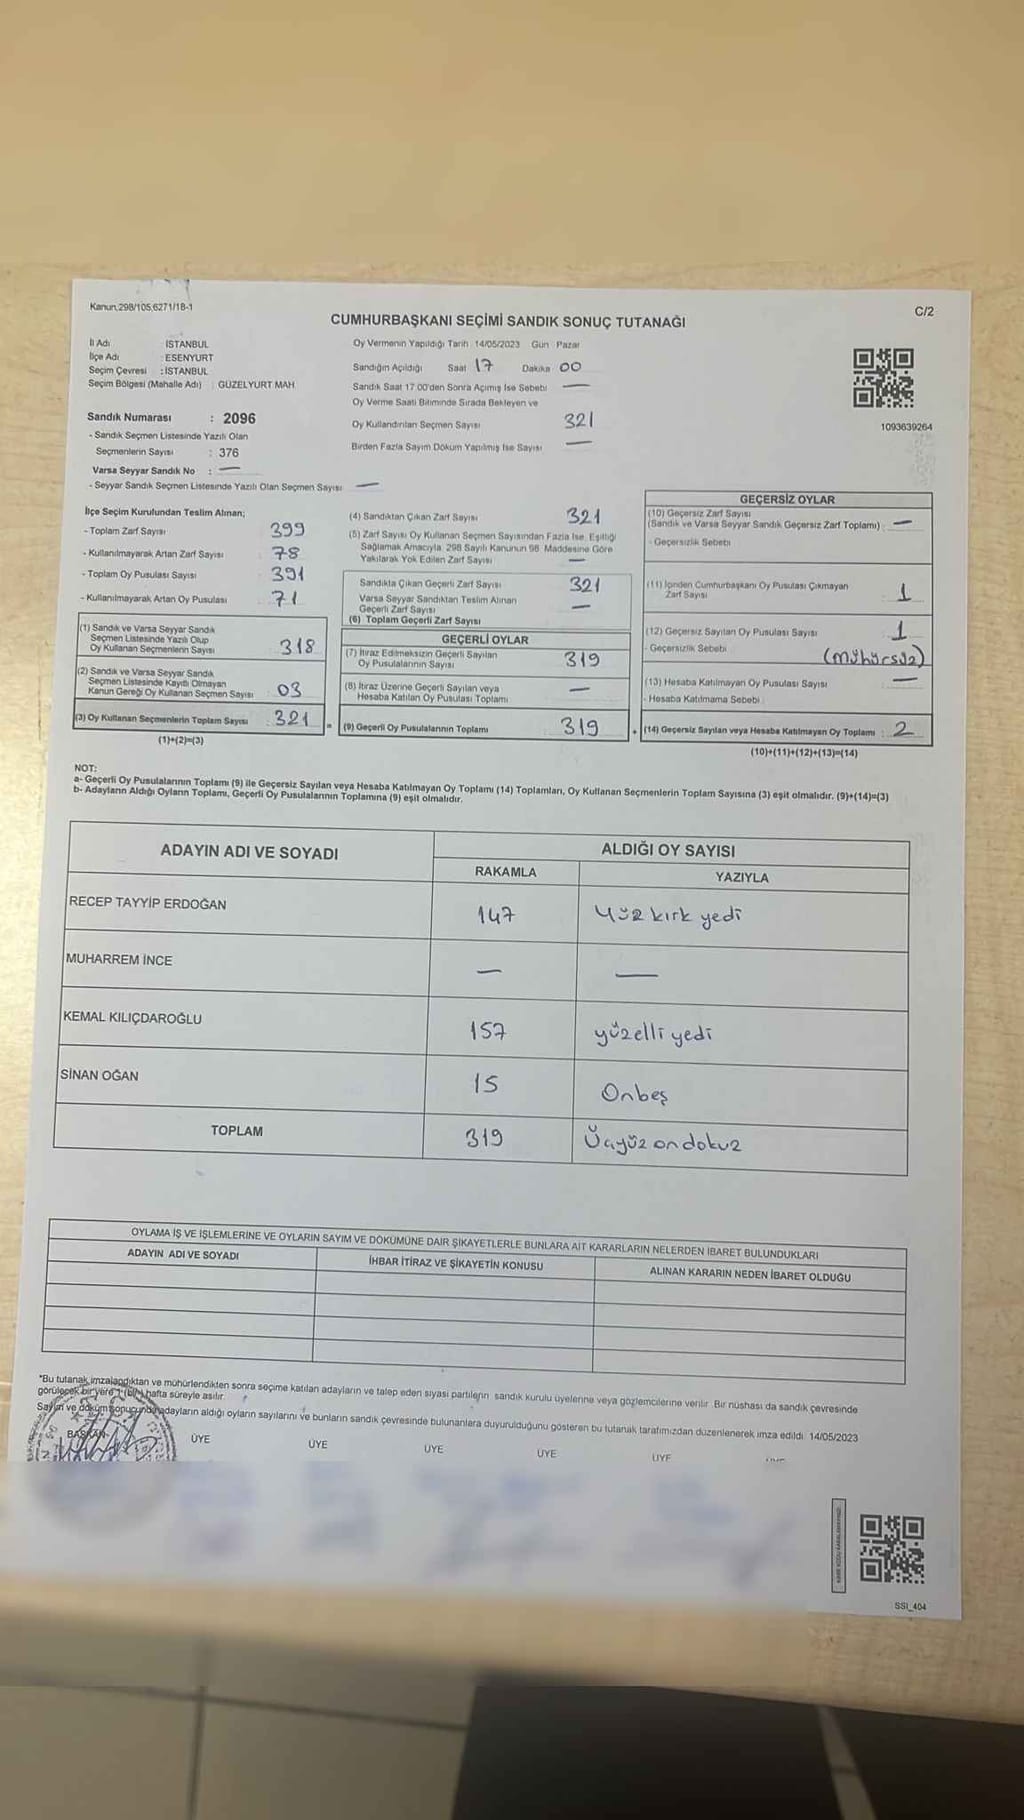 Kanun,298/105,6271/18-1
C/2
CUMHURBAŞKANI SEÇİMİ SANDIK SONUÇ TUTANAĞI
İl Adı : İSTANBUL
İlçe Adı : ESENYURT
Seçim Çevresi : İSTANBUL
Seçim Bölgesi (Mahalle Adı) : GÜZELYURT MAH
Sandık Numarası : 2096
- Sandık Seçmen Listesinde Yazılı Olan
Seçmenlerin Sayısı : 376
Varsa Seyyar Sandık No : —
- Seyyar Sandık Seçmen Listesinde Yazılı Olan Seçmen Sayısı —
Oy Vermenin Yapıldığı Tarih : 14/05/2023 Gün : Pazar
Sandığın Açıldığı Saat 17 Dakika 00
Sandık Saat 17:00'den Sonra Açımış İse Sebebi —
Oy Verme Saati Bitiminde Sırada Bekleyen ve
Oy Kullandırılan Seçmen Sayısı 321
Birden Fazla Sayım Döküm Yapılmış İse Sayısı —
1093639264
İlçe Seçim Kurulundan Teslim Alınan;
- Toplam Zarf Sayısı : 399
- Kullanılmayarak Artan Zarf Sayısı : 78
- Toplam Oy Pusulası Sayısı : 391
- Kullanılmayarak Artan Oy Pusulası : 71
(1) Sandık ve Varsa Seyyar Sandık
Seçmen Listesinde Yazılı Olup
Oy Kullanan Seçmenlerin Sayısı : 318
(2) Sandık ve Varsa Seyyar Sandık
Seçmen Listesinde Kayıtlı Olmayan
Kanun Gereği Oy Kullanan Seçmen Sayısı : 03
(3) Oy Kullanan Seçmenlerin Toplam Sayısı : 321
(1)+(2)=(3)
(4) Sandıktan Çıkan Zarf Sayısı 321
(5) Zarf Sayısı Oy Kullanan Seçmen Sayısından Fazla İse, Eşitliği
Sağlamak Amacıyla, 298 Sayılı Kanunun 98. Maddesine Göre
Yakılarak Yok Edilen Zarf Sayısı —
Sandıkta Çıkan Geçerli Zarf Sayısı 321
Varsa Seyyar Sandıktan Teslim Alınan
Geçerli Zarf Sayısı —
(6) Toplam Geçerli Zarf Sayısı
GEÇERLİ OYLAR
(7) İtiraz Edilmeksizin Geçerli Sayılan
Oy Pusulalarının Sayısı 319
(8) İtiraz Üzerine Geçerli Sayılan veya
Hesaba Katılan Oy Pusulası Toplamı —
= (9) Geçerli Oy Pusulalarının Toplamı 319
GEÇERSİZ OYLAR
(10) Geçersiz Zarf Sayısı
(Sandık ve Varsa Seyyar Sandık Geçersiz Zarf Toplamı) : —
- Geçersizlik Sebebi
(11) İçinden Cumhurbaşkanı Oy Pusulası Çıkmayan
Zarf Sayısı : 1
(12) Geçersiz Sayılan Oy Pusulası Sayısı : 1
- Geçersizlik Sebebi : (mühürsüz)
(13) Hesaba Katılmayan Oy Pusulası Sayısı : —
- Hesaba Katılmama Sebebi :
+ (14) Geçersiz Sayılan veya Hesaba Katılmayan Oy Toplamı : 2
(10)+(11)+(12)+(13)=(14)
NOT:
a- Geçerli Oy Pusulalarının Toplamı (9) ile Geçersiz Sayılan veya Hesaba Katılmayan Oy Toplamı (14) Toplamları, Oy Kullanan Seçmenlerin Toplam Sayısına (3) eşit olmalıdır. (9)+(14)=(3)
b- Adayların Aldığı Oyların Toplamı, Geçerli Oy Pusulalarının Toplamına (9) eşit olmalıdır.
ADAYIN ADI VE SOYADI ALDIĞI OY SAYISI
RAKAMLA YAZIYLA
RECEP TAYYİP ERDOĞAN 147 Yüz kırk yedi
MUHARREM İNCE — —
KEMAL KILIÇDAROĞLU 157 yüzelli yedi
SİNAN OĞAN 15 Onbeş
TOPLAM 319 Üçyüz on dokuz
OYLAMA İŞ VE İŞLEMLERİNE VE OYLARIN SAYIM VE DÖKÜMÜNE DAİR ŞİKAYETLERLE BUNLARA AİT KARARLARIN NELERDEN İBARET BULUNDUKLARI
ADAYIN ADI VE SOYADI İHBAR İTİRAZ VE ŞİKAYETİN KONUSU ALINAN KARARIN NEDEN İBARET OLDUĞU
*Bu tutanak imzalandıktan ve mühürlendikten sonra seçime katılan adayların ve talep eden siyasi partilerin sandık kurulu üyelerine veya gözlemcilerine verilir. Bir nüshası da sandık çevresinde
görülecek bir yere 1 (bir) hafta süreyle asılır.
Sayım ve döküm sonucunda adayların aldığı oyların sayılarını ve bunların sandık çevresinde bulunanlara duyurulduğunu gösteren bu tutanak tarafımızdan düzenlenerek imza edildi. 14/05/2023
BAŞKAN ÜYE ÜYE ÜYE ÜYE ÜYE
SSI_404